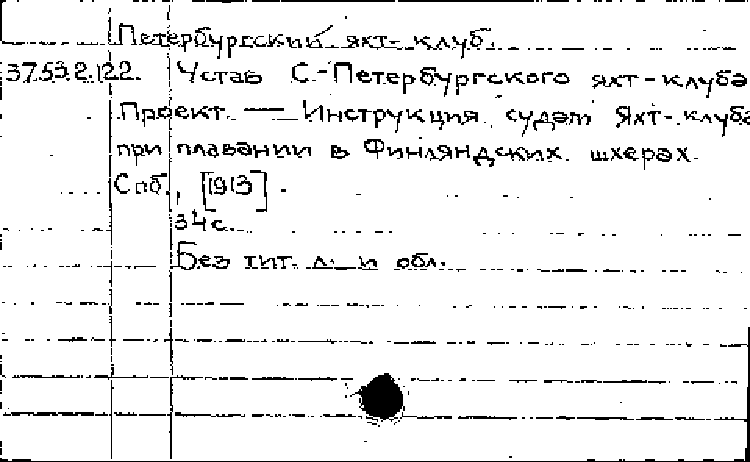 Петербургский яхт-клуб.
37.53.2.122. Устав С.-Петербургского яхт-клуба
Проект. — Инструкция судам Яхт-клуба
при плавании в Финляндских шхерах.
Спб., [1913].
34с.
Без тит. л. и обл.